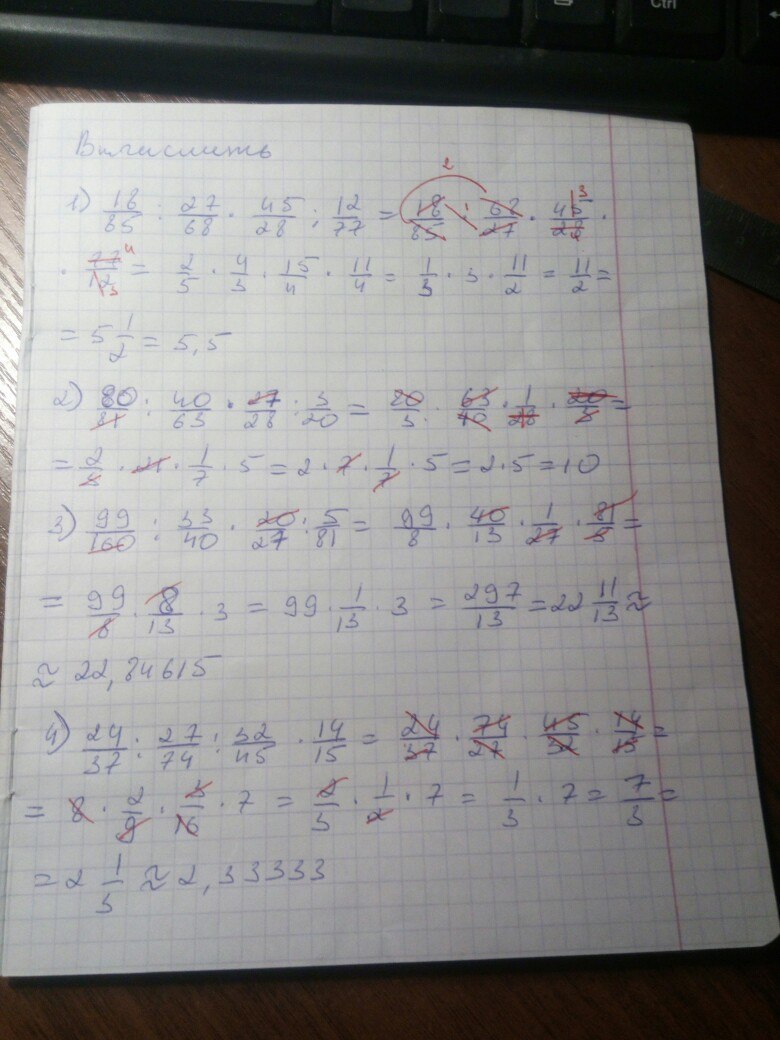 Вычислить
1) 18/85 : 27/68 · 45/28 : 12/77 = 18/85 · 68/27 · 45/28 ·
· 77/12 = 2/5 · 4/3 · 15/4 · 11/4 = 1/3 · 3 · 11/2 = 11/2 =
= 5 1/2 = 5,5
2) 80/81 : 40/63 · 27/28 : 3/20 = 80/3 · 63/40 · 1/28 · 20/3 =
= 2/3 · 21 · 1/7 · 5 = 2 · 7 · 1/7 · 5 = 2 · 5 = 10
3) 99/160 : 33/40 · 20/27 : 5/81 = 99/8 · 40/13 · 1/27 · 81/5 =
= 99/8 · 8/13 · 3 = 99 · 1/13 · 3 = 297/13 = 22 11/13 ≈
≈ 22,84615
4) 24/37 : 27/74 : 32/45 · 14/15 = 24/37 · 74/27 · 45/32 · 14/15 =
= 8 · 2/9 · 3/16 · 7 = 2/3 · 1/2 · 7 = 1/3 · 7 = 7/3 =
= 2 1/3 ≈ 2,33333
Ctrl